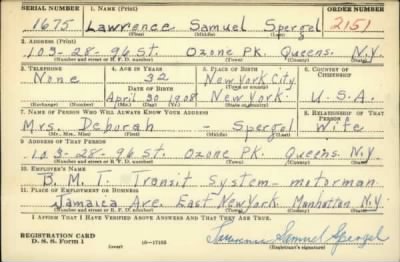 SERIAL NUMBER 1. NAME (Print) ORDER NUMBER
1675 Lawrence Samuel Spergel 2151
(First) (Middle) (Last)
2. ADDRESS (Print)
103-28-96 St. Ozone Pk. Queens. N.Y.
(Number and street or R. F. D. number) (Town) (County) (State)
3. TELEPHONE 4. AGE IN YEARS 5. PLACE OF BIRTH 6. COUNTRY OF CITIZENSHIP
None 32 New York City
DATE OF BIRTH (Town or county)
April 30 1908 New York U.S.A.
(Exchange) (Number) (Mo.) (Day) (Yr.) (State or country)
7. NAME OF PERSON WHO WILL ALWAYS KNOW YOUR ADDRESS 8. RELATIONSHIP OF THAT PERSON
Mrs. Deborah - Spergel Wife
(Mr., Mrs., Miss) (First) (Middle) (Last)
9. ADDRESS OF THAT PERSON
103-28-96 St. Ozone Pk. Queens. N.Y.
(Number and street or R. F. D. number) (Town) (County) (State)
10. EMPLOYER'S NAME
B.M.T. Transit System - motorman
11. PLACE OF EMPLOYMENT OR BUSINESS
Jamaica Ave. East New York Manhattan N.Y.
(Number and street or R. F. D. number) (Town) (County) (State)
I AFFIRM THAT I HAVE VERIFIED ABOVE ANSWERS AND THAT THEY ARE TRUE.
REGISTRATION CARD
D. S. S. Form 1 (over) 16-17105 Lawrence Samuel Spergel
(Registrant's signature)